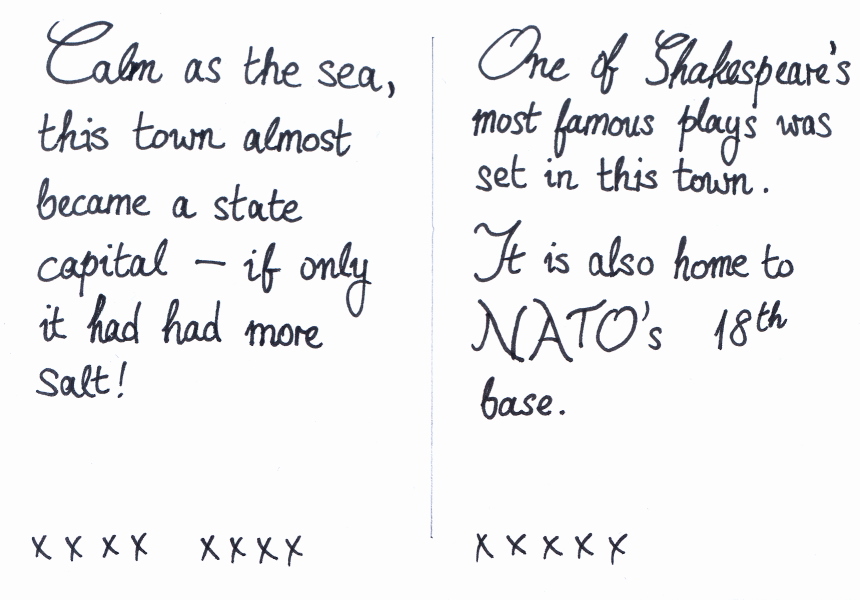 Calm as the sea,
this town almost
became a state
capital – if only
it had had more
salt!
x x x x x x x x
One of Shakespeare's
most famous plays was
set in this town.
It is also home to
NATO's 18th
base.
x x x x x